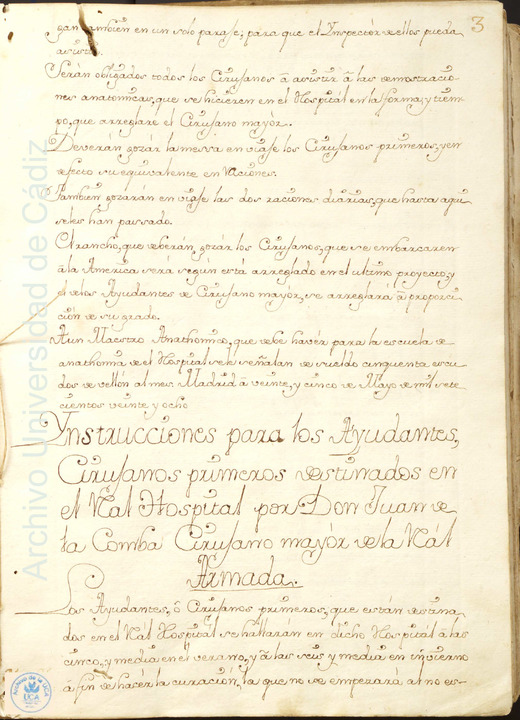 3
gan tambien en un solo parage; para que el Ynspector de ellos pueda
asistir.
Serán obligados todos los Cirujanos â asistir â las demostracio-
nes anatomicas, que se hicieren en el Hospital en la forma, y tiem-
po, que arreglare el Cirujano mayòr.
Deverán gozár la mesa en viaje los Cirujanos primeros, y en
defecto su equivalente en Raciones.
Tambien gozarán en viaje las dos raciones diarias, que hasta aqui
se les han passado.
El rancho, que deberán gozár los Cirujanos, que se embarcaren
â la America será segun está arreglado en el ultimo proyecto, y
el de los Ayudantes de Cirujano mayòr, se arreglará â proporci-
ción de su grado.
A un Maestro Anathomico, que debe havér para la escuela de
anathomia de el Hospital se le señalan de sueldo cinquenta escu-
dos de vellón al mes. Madrid â veinte, y cinco de Mayo de mil sete
cientos veinte y ocho
Ynstrucciones para los Ayudantes,
Cirujanos primeros destinados en
el Rál Hospital por Don Juan de
la Comba Cirujano mayòr de la Rál
Armada.
Los Ayudantes, ô Cirujanos primeros, que están destina-
dos en el Rál Hospital se hallarán en dicho Hospitál â las
cinco, y media en el verano, y â las seis y media en invierno
â fin de hacér la curación, la que no se empezará al no es-
Archivo Universidad de Cádiz
Archivo de la UCA
UCA